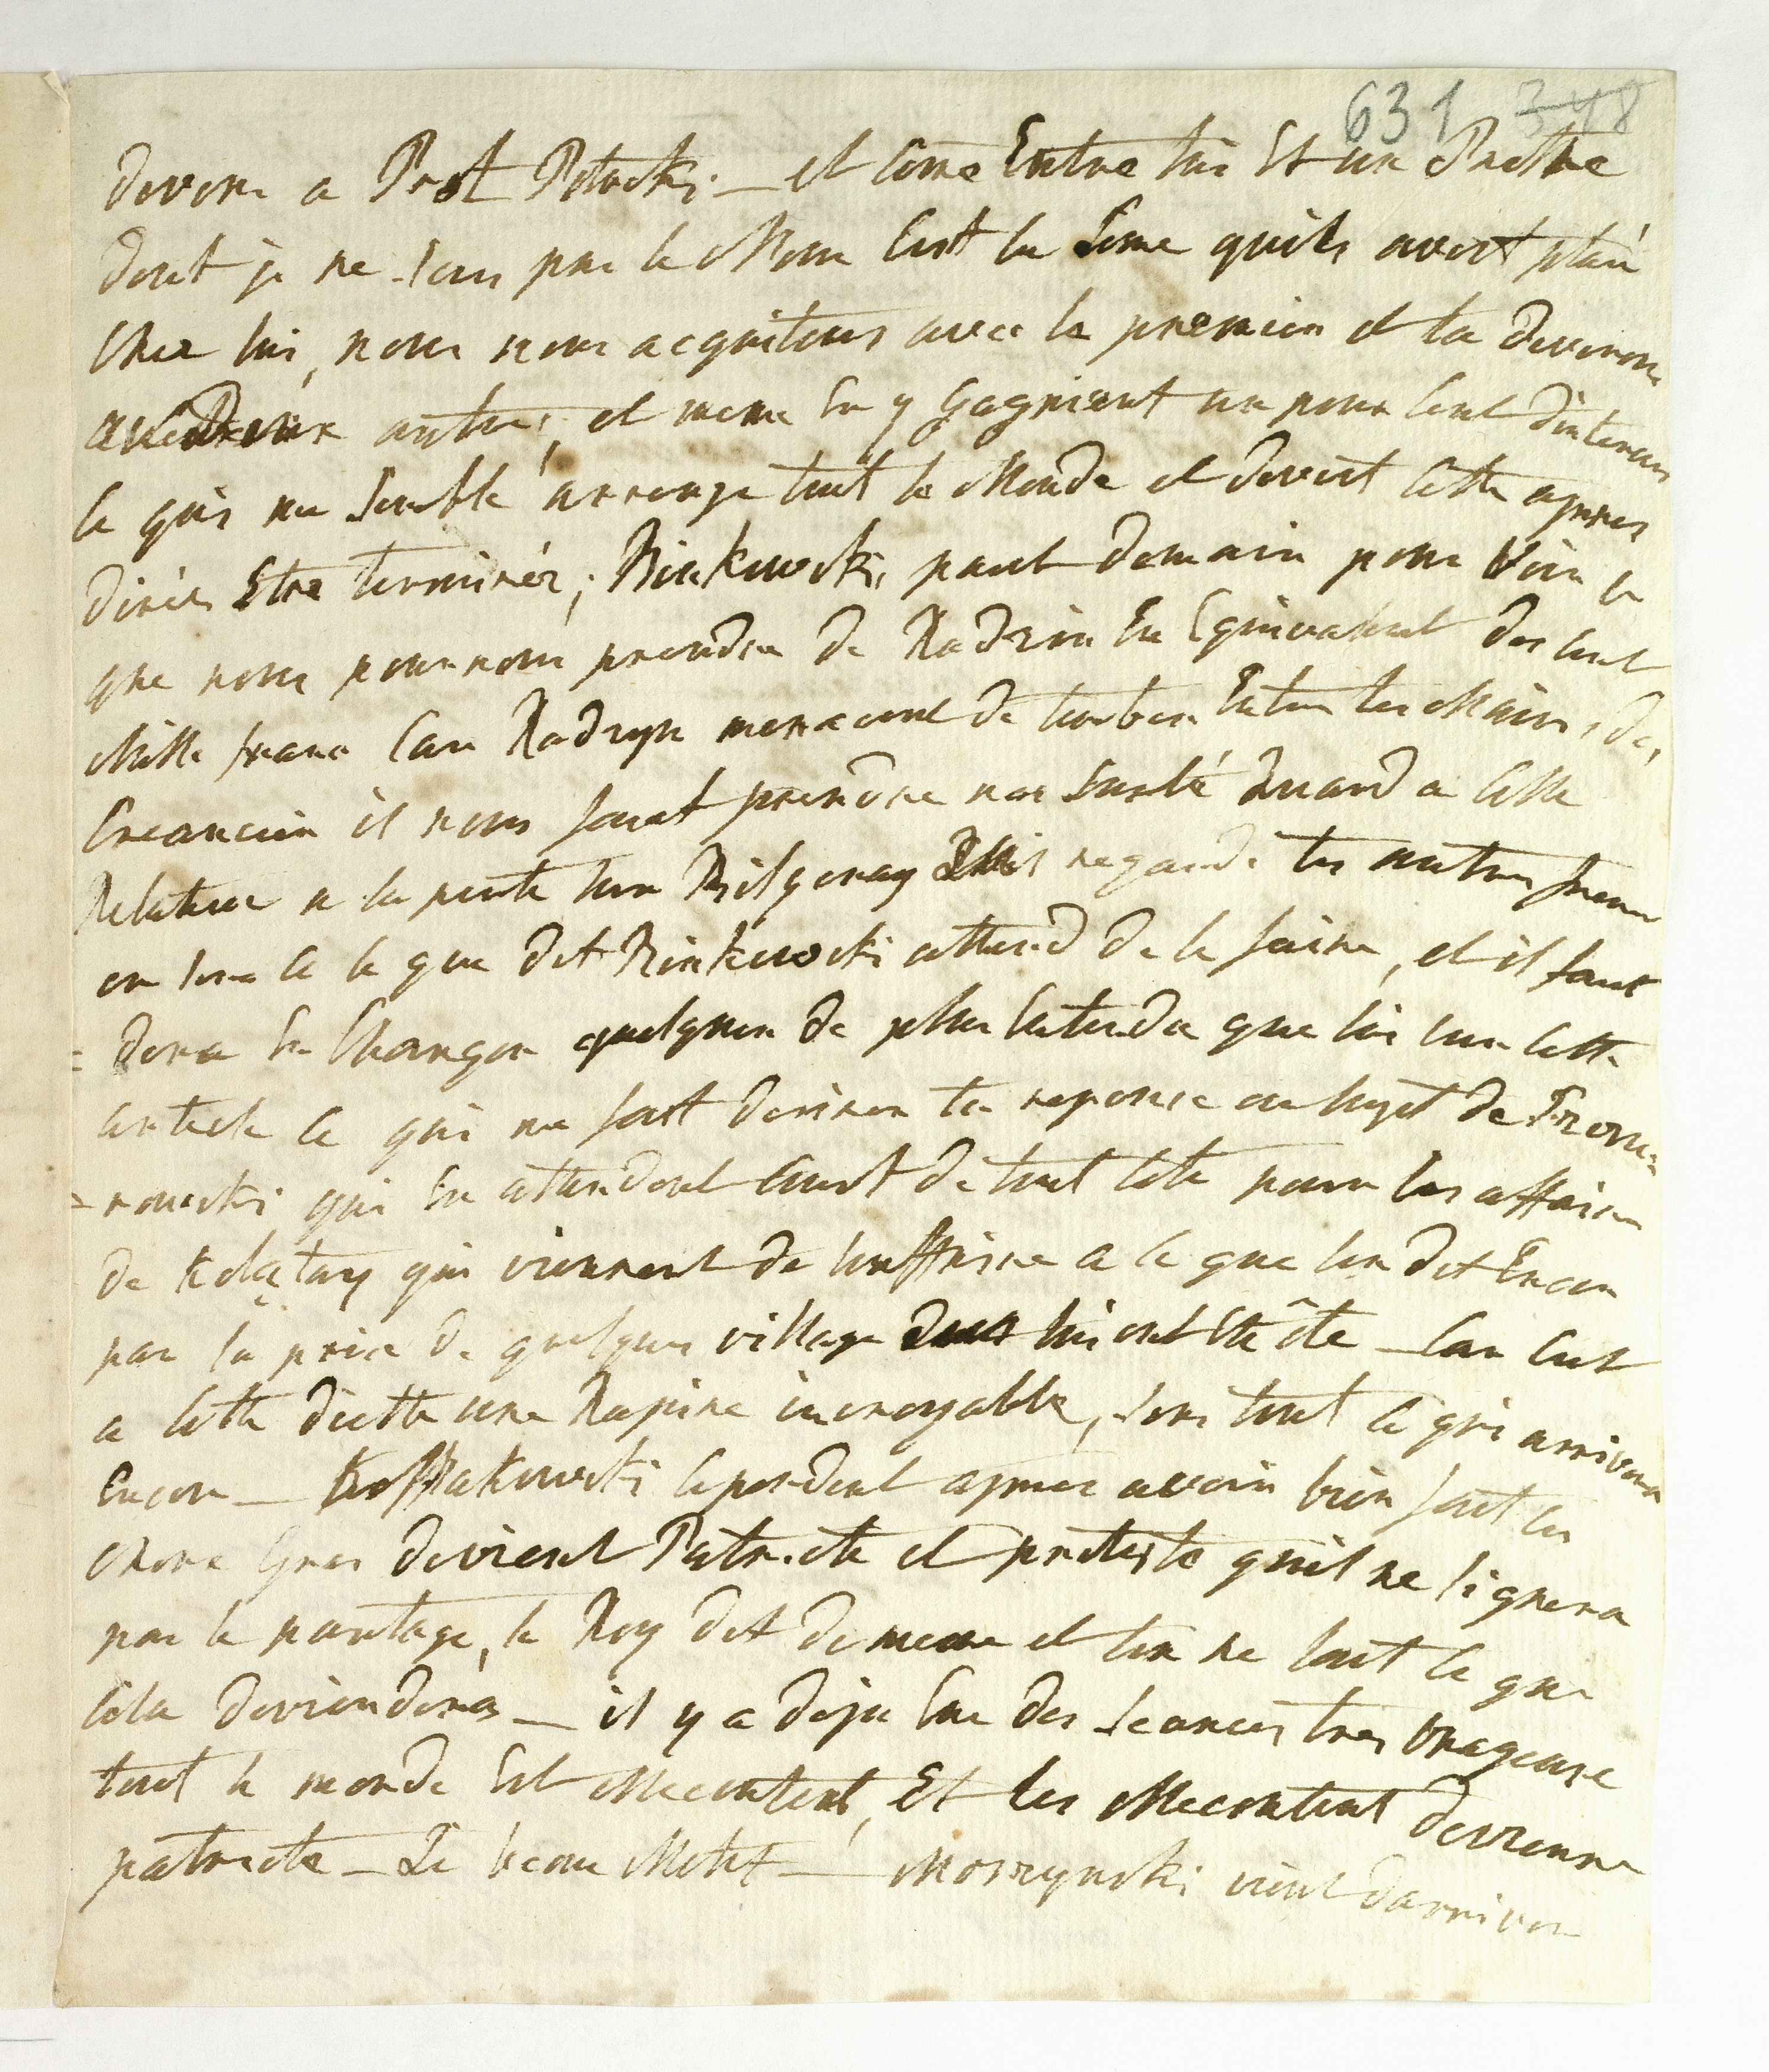 631 348
devons a Prot Potocki — et come Entre lui Et un Pretre
dont je ne scais pas le Nom c'est la some quils avoit placé
chez lui, nous nous acquitons avec le premier et la devrons
aux autres, et meme en y gagniant un pour cent d'interais
ce qui me semble arrange tout le Monde et devoit cette apres
dinés Etre terminér; Binkowski part demain pour Voir ce
que nous pourrons prendre de Radzin En Equivalent des cent
Mille francs Car Radzyn menacent de tomber Entre les Mains des
Creancier il nous faut prendre nos sureté Quand a celle
Relative a la perte sur Bilgoray regarde tes autres freres
on sera a ce que dit Binkowski attend de le faire, et il faut
= dera En Charger quelquun de plus entendu que lui sur cette
article ce qui me fait desirer ta reponse au sujet de
= rowski qui En attendant court de tout coté pour les affaires
de Kołątay qui viennent de souffrire a ce que l'on dit Encor
par la prise de quelques village lui ont été ôté — Car c'est
a cette diette une Rapine incroyable, sens tout ce qui arrivera
Encor — Kossakowski cependant apres avoir bien fait ses
choux Gras devient Patriote et proteste quil ne signera
pas le partage, le Roy dit de meme et l'on ne sait ce que
cela deviendera — il y a deja eue des seances tres Orageuse
tout le monde Est Mecontent, Et les Mecontent devienne
patriote — Le beau Motif — Moszynski vient d'arriver